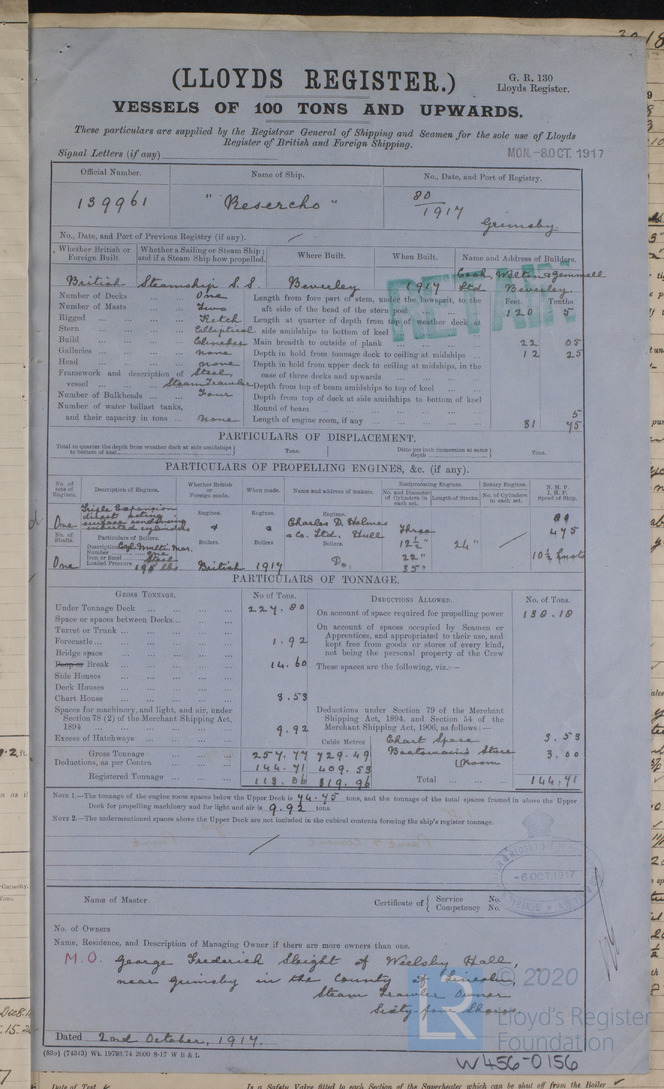 (LLOYDS REGISTER.)
G. R. 130
Lloyds Register.
VESSELS OF 100 TONS AND UPWARDS.
These particulars are supplied by the Registrar General of Shipping and Seamen for the sole use of Lloyds
Register of British and Foreign Shipping.
Signal Letters (if any)
MON. -8OCT. 1917
Official Number. Name of Ship. No., Date, and Port of Registry.
139961 "Besercho" 80/1917 Grimsby
No., Date, and Port of Previous Registry (if any). /
Whether British or Foreign Built. Whether a Sailing or Steam Ship; and if a Steam Ship how propelled. Where Built. When Built. Name and Address of Builders.
British Steamship S.S. Beverley 1917 Cook, Welton & Gemmell Ltd Beverley
RETAIN
Feet. Tenths
Number of Decks One Length from fore part of stem, under the bowsprit, to the
Number of Masts Two aft side of the head of the stern post 120 5
Rigged Ketch Length at quarter of depth from top of weather deck at
Stern Elliptical side amidships to bottom of keel
Build Clencher Main breadth to outside of plank 22 05
Galleries none Depth in hold from tonnage deck to ceiling at midships 12 25
Head none Depth in hold from upper deck to ceiling at midships, in the
Framework and description of Steel case of three decks and upwards
vessel Steam Trawler Depth from top of beam amidships to top of keel
Number of Bulkheads Four Depth from top of deck at side amidships to bottom of keel
Number of water ballast tanks, Round of beam 5
and their capacity in tons none Length of engine room, if any 31 75
PARTICULARS OF DISPLACEMENT.
Total to quarter the depth from weather deck at side amidships to bottom of keel Tons. Ditto per inch immersion at same depth Tons.
PARTICULARS OF PROPELLING ENGINES, &c. (if any).
No. of sets of Engines. Description of Engines. Whether British or Foreign made. When made. Name and address of makers. Reciprocating Engines. Rotary Engines. N. H. P. I. H. P. Speed of Ship.
No. and Diameter of Cylinders in each set. Length of Stroke. No. of Cylinders in each set.
One Triple Expansion direct acting surface condensing inverted cylinders Engines. Engines. Engines. Charles D. Holmes & Co. Ltd. Hull Three 12½" 24" / 475
No. of Shafts. Particulars of Boilers. Boilers. Boilers Boilers. 22" 10½ knots
One Description Cyl. Multi. Mar. Number One Iron or Steel Steel Loaded Pressure 195 lbs British 1917 Do. 35"
PARTICULARS OF TONNAGE.
GROSS TONNAGE. No of Tons. DEDUCTIONS ALLOWED. No. of Tons.
Under Tonnage Deck 227.80 On account of space required for propelling power 138.18
Space or spaces between Decks
Turret or Trunk On account of spaces occupied by Seamen or
Forecastle 1.92 Apprentices, and appropriated to their use, and
Bridge space kept free from goods or stores of every kind,
not being the personal property of the Crew
Poop or Break 14.60 These spaces are the following, viz:—
Side Houses
Deck Houses
Chart House 3.53
Spaces for machinery, and light, and air, under Deductions under Section 79 of the Merchant
Section 78 (2) of the Merchant Shipping Act, Shipping Act, 1894, and Section 54 of the
1894 9.92 Merchant Shipping Act, 1906, as follows:—
Excess of Hatchways Cubic Metres Chart Space 3.53
Gross Tonnage 257.77 729.49 Boatswain's Store Room 3.00
Deductions, as per Contra 144.71 409.53
Registered Tonnage 113.06 319.96 Total 144.71
NOTE 1.—The tonnage of the engine room spaces below the Upper Deck is 44.45 tons, and the tonnage of the total spaces framed in above the Upper
Deck for propelling machinery and for light and air is 9.92 tons.
NOTE 2.—The undermentioned spaces above the Upper Deck are not included in the cubical contents forming the ship's register tonnage.
-6 OCT 1917
Name of Master Certificate of { Service No. Competency No.
No. of Owners
Name, Residence, and Description of Managing Owner if there are more owners than one.
M.O. George Frederick Sleight of Weelsby Hall,
near Grimsby in the County of Lincoln,
Steam Trawler Owner
Sixty-four Shares
Dated 2nd October, 1917.
(83o) (74313) Wt. 19793.74 2000 8-17 W B & L
© 2020
LR Lloyd's Register
Foundation
W456-0156
Date of Test
is a Safety Valve fitted to each Section of the Superheater which can be shut off from the Boiler